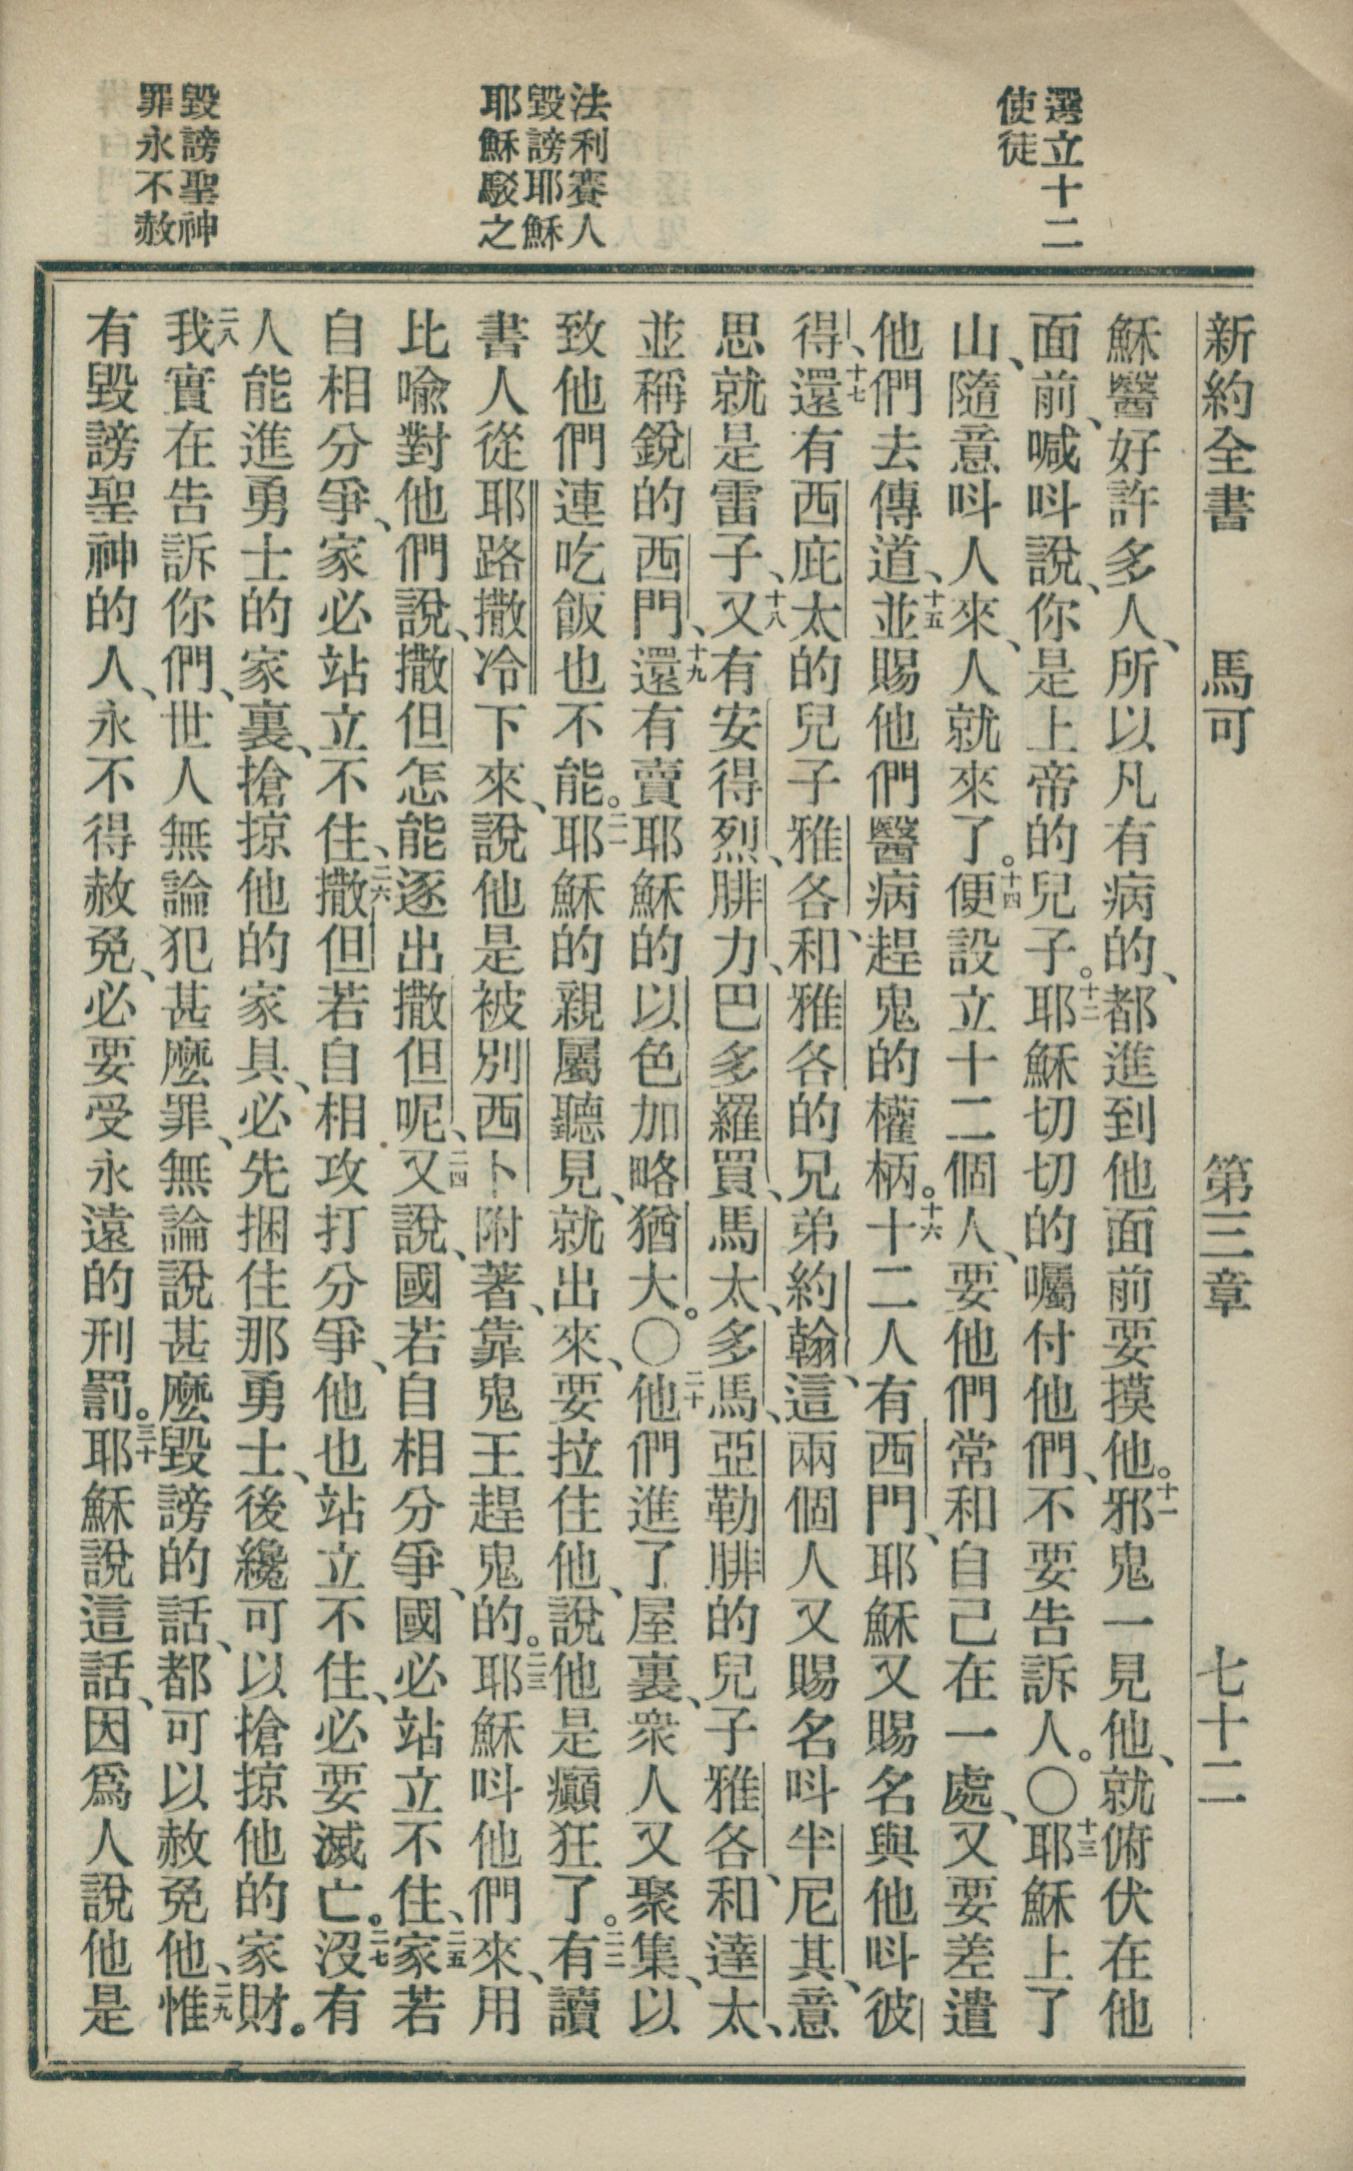 選立十二
使徒
法利賽人
毀謗耶穌
耶穌駁之
毀謗聖神
罪永不赦
新約全書 馬可 第三章 七十二
穌醫好許多人、所以凡有病的、都進到他面前要摸他。十一邪鬼一見他、就俯伏在他
面前、喊呌說、你是上帝的兒子。十二耶穌切切的囑付他們、不要告訴人。〇十三耶穌上了
山、隨意呌人來、人就來了。十四便設立十二個人、要他們常和自己在一處、又要差遣
他們去傳道、十五並賜他們醫病趕鬼的權柄。十六十二人有西門、耶穌又賜名與他呌彼
得、十七還有西庇太的兒子雅各、和雅各的兄弟約翰、這兩個人又賜名呌半尼其、意
思就是雷子、十八又有安得烈、腓力、巴多羅買、馬太、多馬、亞勒腓的兒子雅各、和達太、
並稱銳的西門、十九還有賣耶穌的以色加略猶大。〇二十他們進了屋裏、衆人又聚集、以
致他們連吃飯也不能。二一耶穌的親屬聽見、就出來、要拉住他、說他是癲狂了。二二有讀
書人從耶路撒冷下來、說他是被別西卜附著、靠鬼王趕鬼的。二三耶穌呌他們來、用
比喩對他們說、撒但怎能逐出撒但呢、二四又說、國若自相分爭、國必站立不住、二五家若
自相分爭、家必站立不住、二六撒但若自相攻打分爭、他也站立不住、必要滅亡。二七沒有
人能進勇士的家裏、搶掠他的家具、必先捆住那勇士、後纔可以搶掠他的家財。
二八我實在告訴你們、世人無論犯甚麼罪、無論說甚麼毀謗的話、都可以赦免他、二九惟
有毀謗聖神的人、永不得赦免、必要受永遠的刑罰。三十耶穌說這話、因爲人說他是